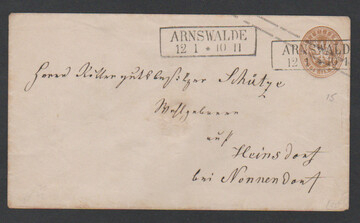 ARNSWALDE
12 1 * 10-11
ARNSWALDE
12 1 * 10-1
Herrn Rittergutsbesitzer Schütze
Wohlgeboren
auf
Heinsdorf
bei Nonnendorf
15